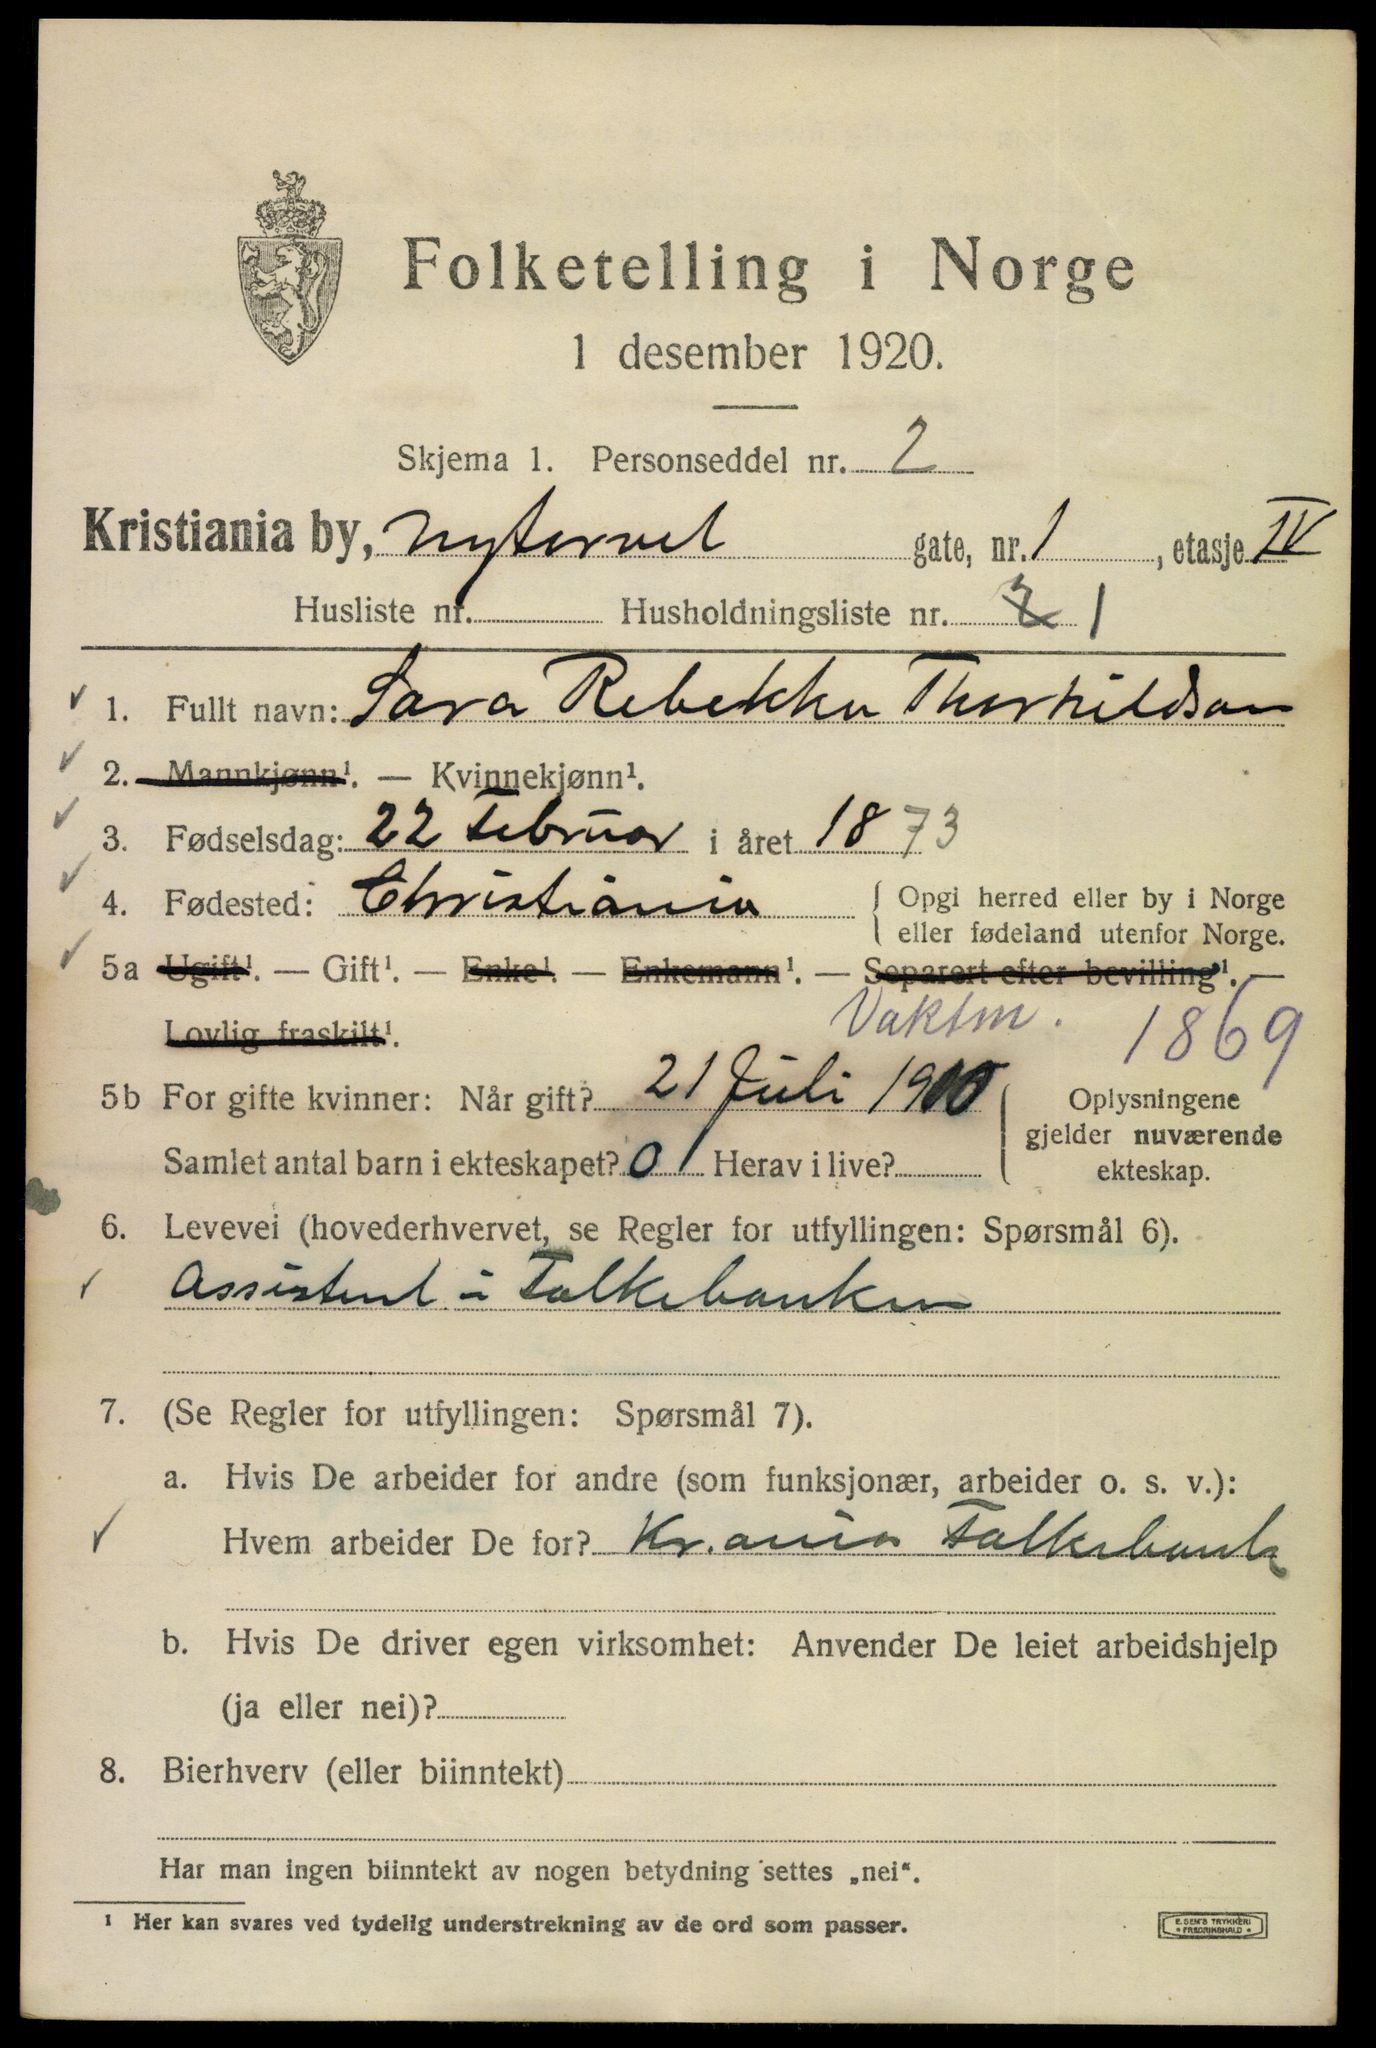 Folketelling i Norge
1 desember 1920.
Skjema 1. Personseddel nr. 2
Kristiania by, Nytorvet gate, nr. 1, etasje IV
Husliste nr. Husholdningsliste nr. 2 1
1. Fullt navn: Sara Rebekka Thorkildsen
2. Mannkjønn¹. — Kvinnekjønn¹.
3. Fødselsdag: 22 Februar i året 1873
4. Fødested: Christiania { Opgi herred eller by i Norge
eller fødeland utenfor Norge.
5a Ugift¹. — Gift¹. — Enke¹. — Enkemann¹. — Separert efter bevilling¹. —
Lovlig fraskilt¹. Vaktm. 1869
5b For gifte kvinner: Når gift? 21 Juli 1910
Samlet antal barn i ekteskapet? 0 Herav i live?
Oplysningene
gjelder nuværende
ekteskap.
6. Levevei (hovederhvervet, se Regler for utfyllingen: Spørsmål 6).
Assistent i Folkebanken
7. (Se Regler for utfyllingen: Spørsmål 7).
a. Hvis De arbeider for andre (som funksjonær, arbeider o. s. v.):
Hvem arbeider De for? Kr.ania Folkebank
b. Hvis De driver egen virksomhet: Anvender De leiet arbeidshjelp
(ja eller nei)?
8. Bierhverv (eller biinntekt)
Har man ingen biinntekt av nogen betydning settes „nei“.
¹ Her kan svares ved tydelig understrekning av de ord som passer.
E. SEM'S TRYKKERI
* FREDRIKSHALD *